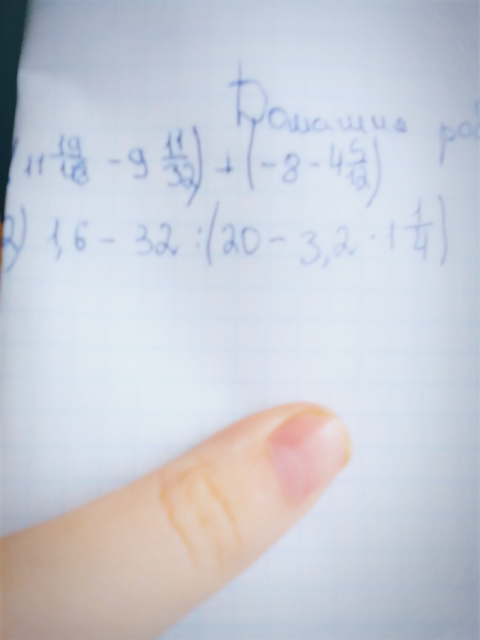 Домашня роб
(11 19/48 - 9 11/32) + (-8 - 4 5/12)
2) 1,6 - 32 : (20 - 3,2 · 1 1/4)